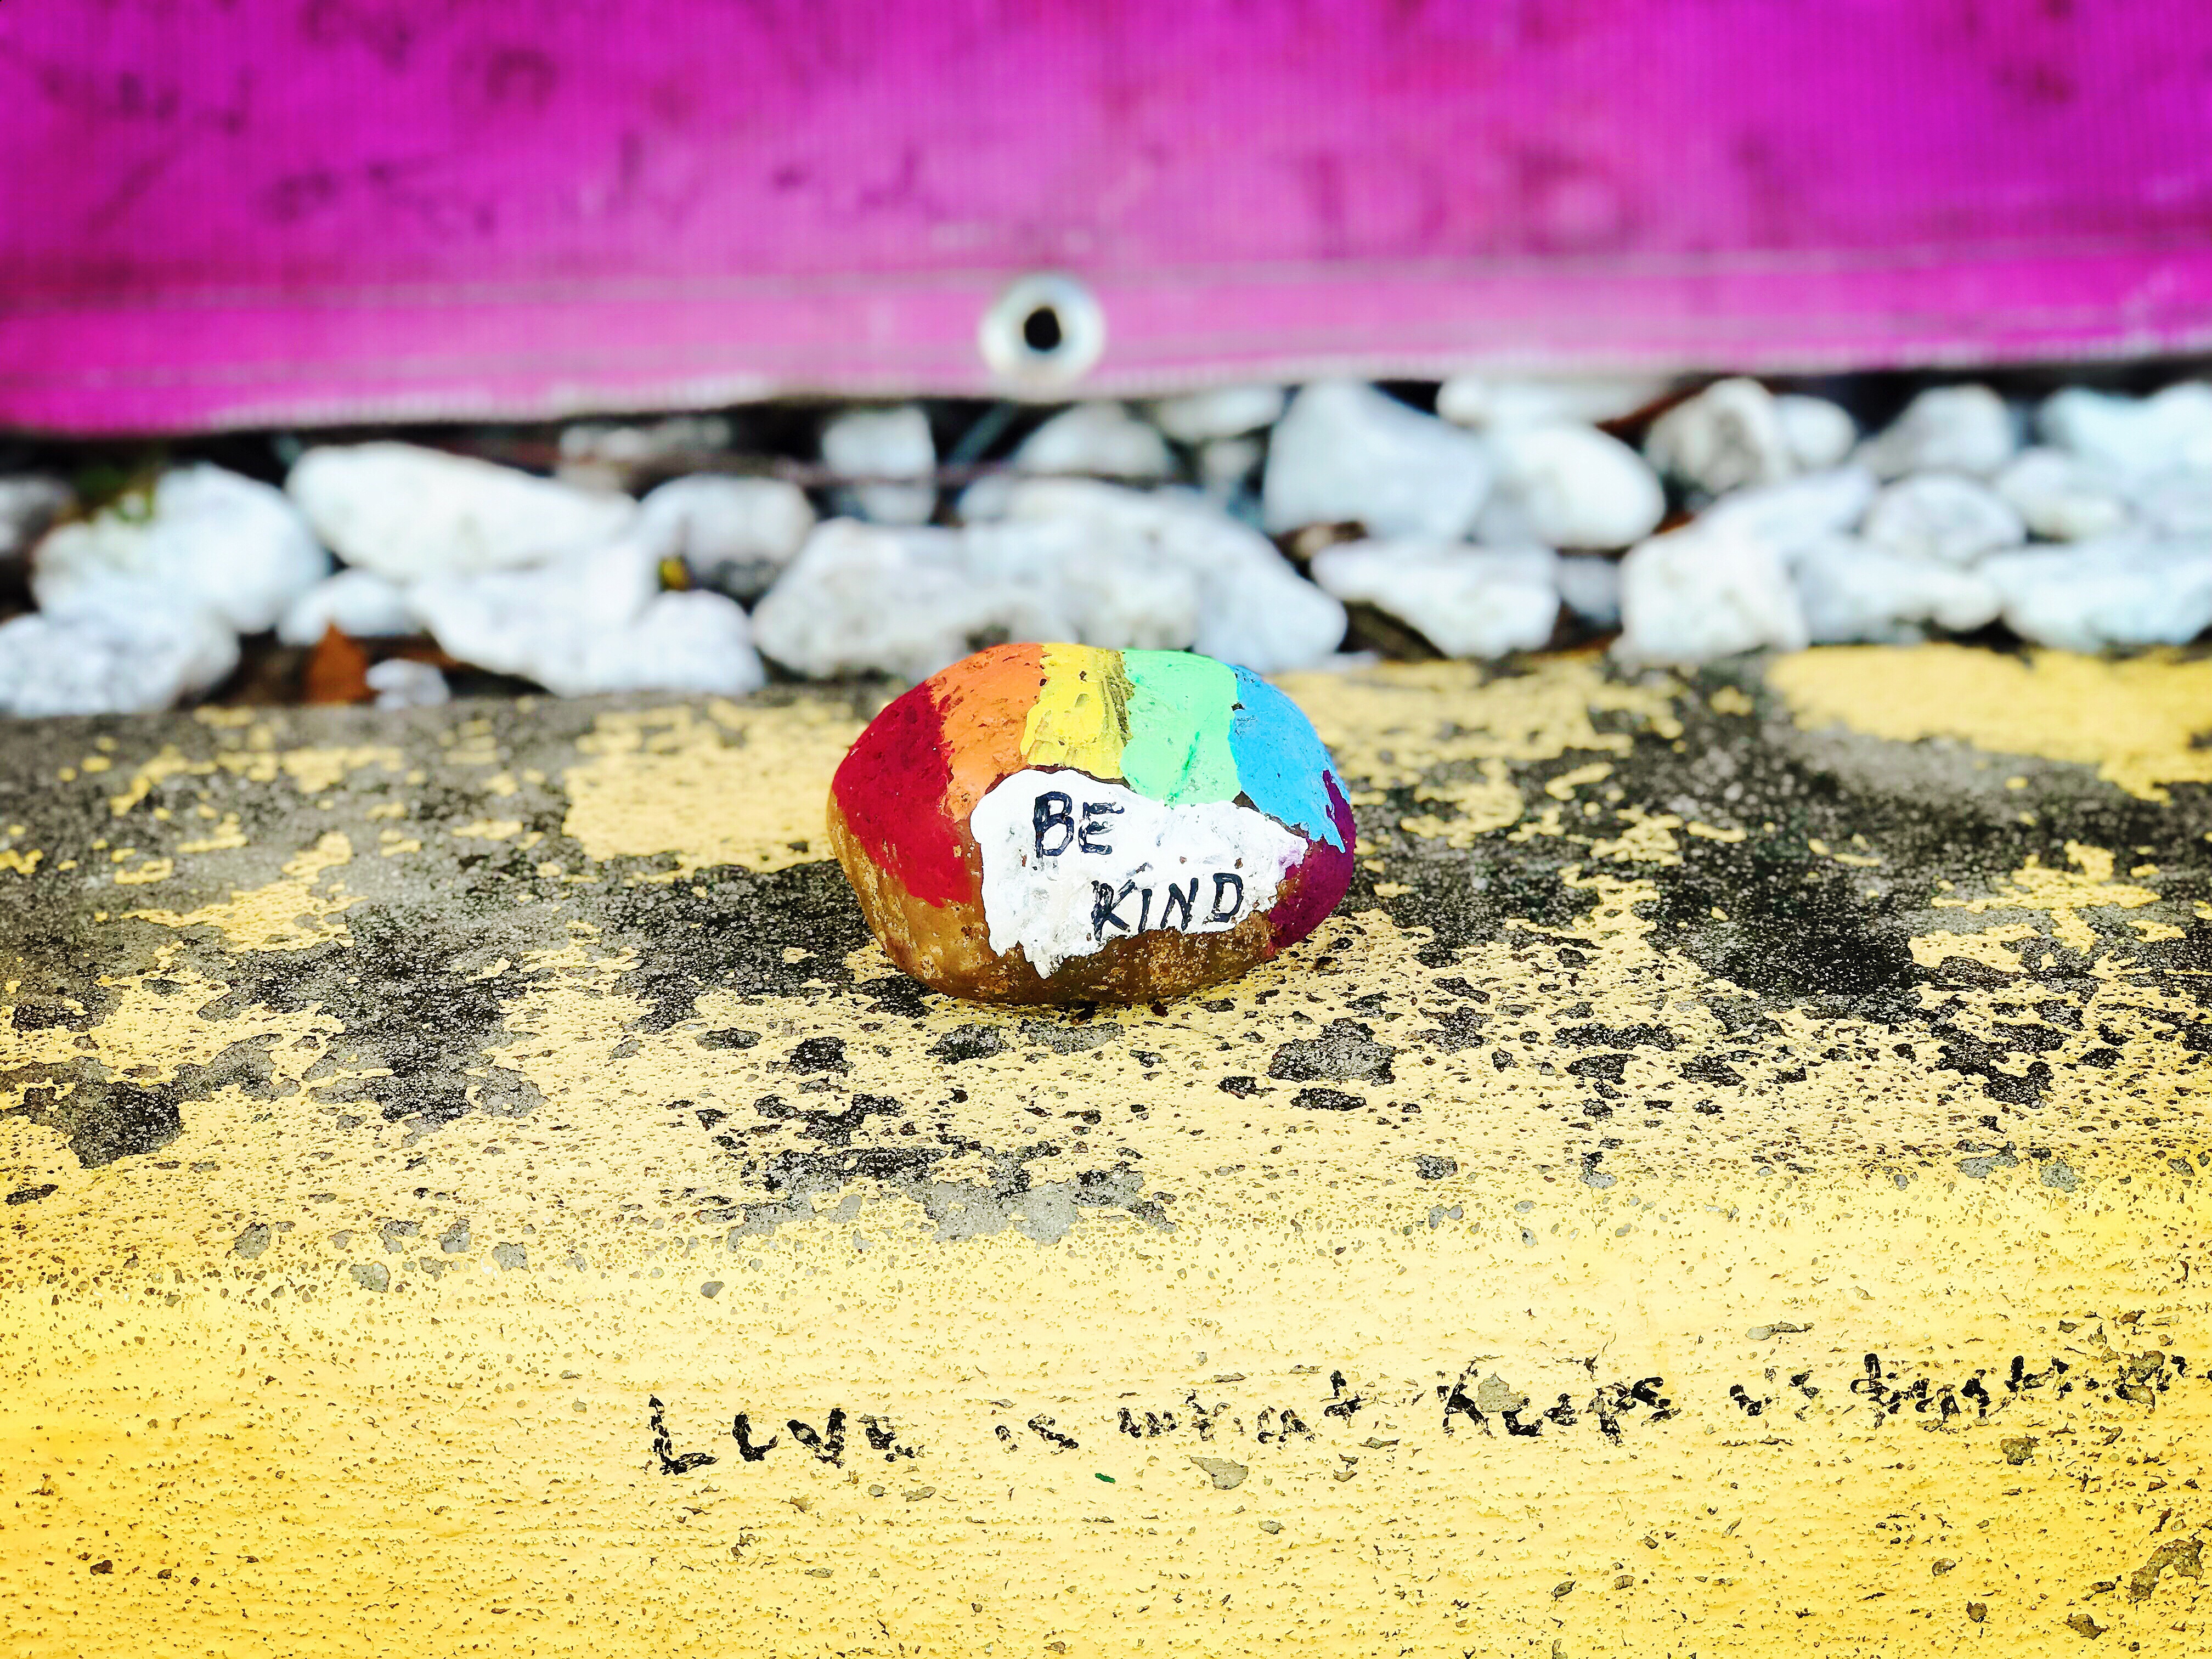 BE
KIND
Love is what keeps us together